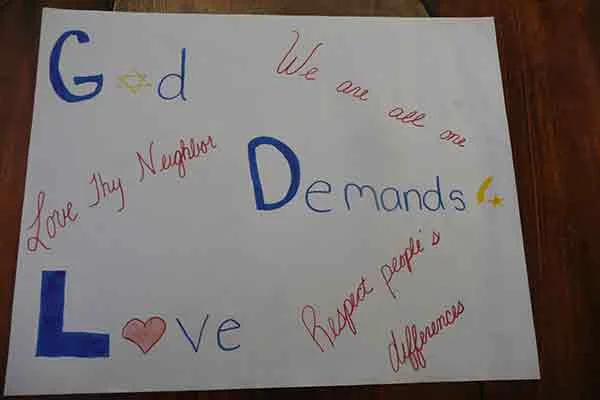 God
We are all one
Love Thy Neighbor
Demands
Love
Respect people's
differences